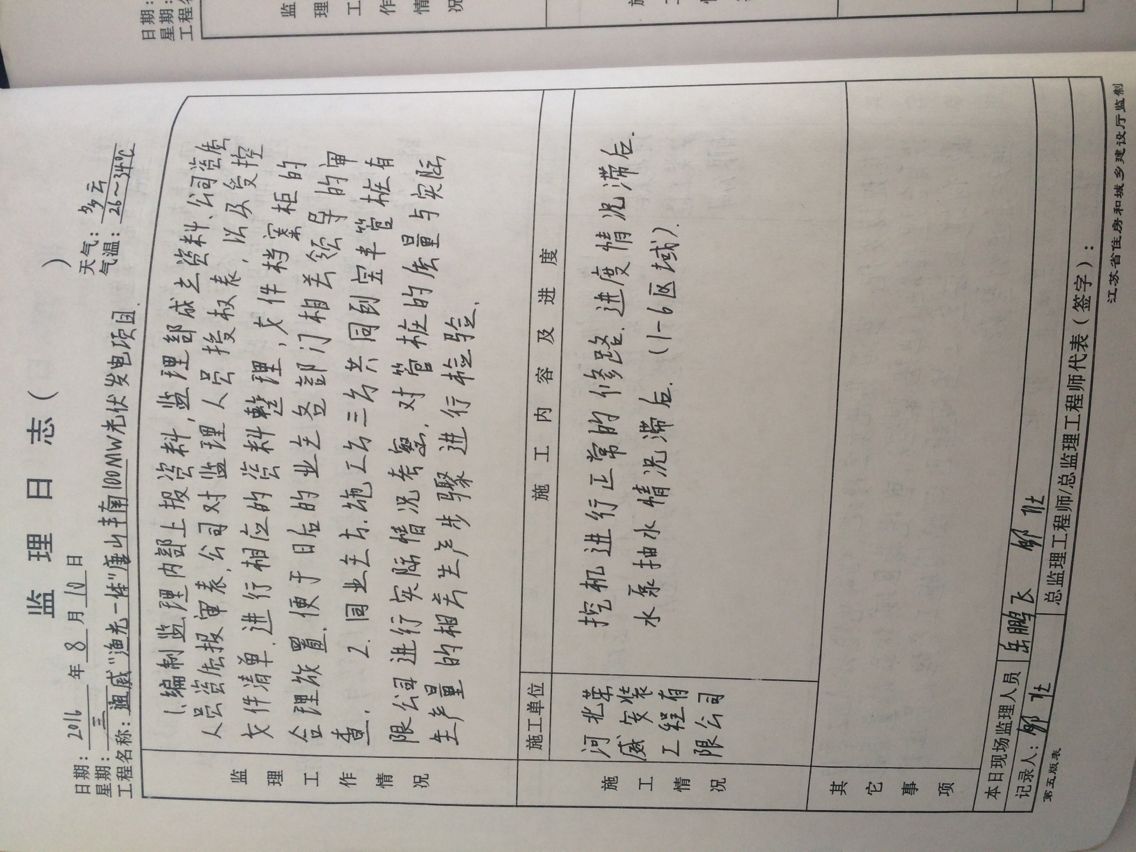 监理日志（　　）
日期：2016年8月10日　天气：多云
星期：三　气温：26～34℃
工程名称："渔光一体"唐山丰南100MW光伏发电项目.
监理工作情况
1.编制监理内部上报资料,监理部成立资料、公司资质
人员资质报审表,公司对监理人员授权表,以及受控
文件清单.进行相应的资料整理,文件档案柜的
合理放置,便于日后的业主各部门相关领导的审
查. 2.同业主方.施工方三方共同到宝丰管桩有
限公司进行实际情况考察,对管桩的质量与实际
生产量的相关生产步骤进行检验.
施工单位　施工内容及进度
施工情况
河北华
威安装
工程有
限公司
挖机进行正常的修路.进度情况滞后.
水泵抽水情况滞后.（1-6区域）.
其它事项
本日现场监理人员　岳鹏飞
记录人：　总监理工程师/总监理工程师代表（签字）：
第五版表　江苏省住房和城乡建设厅监制
日期：
星期：
工程名
监理工作情况
施